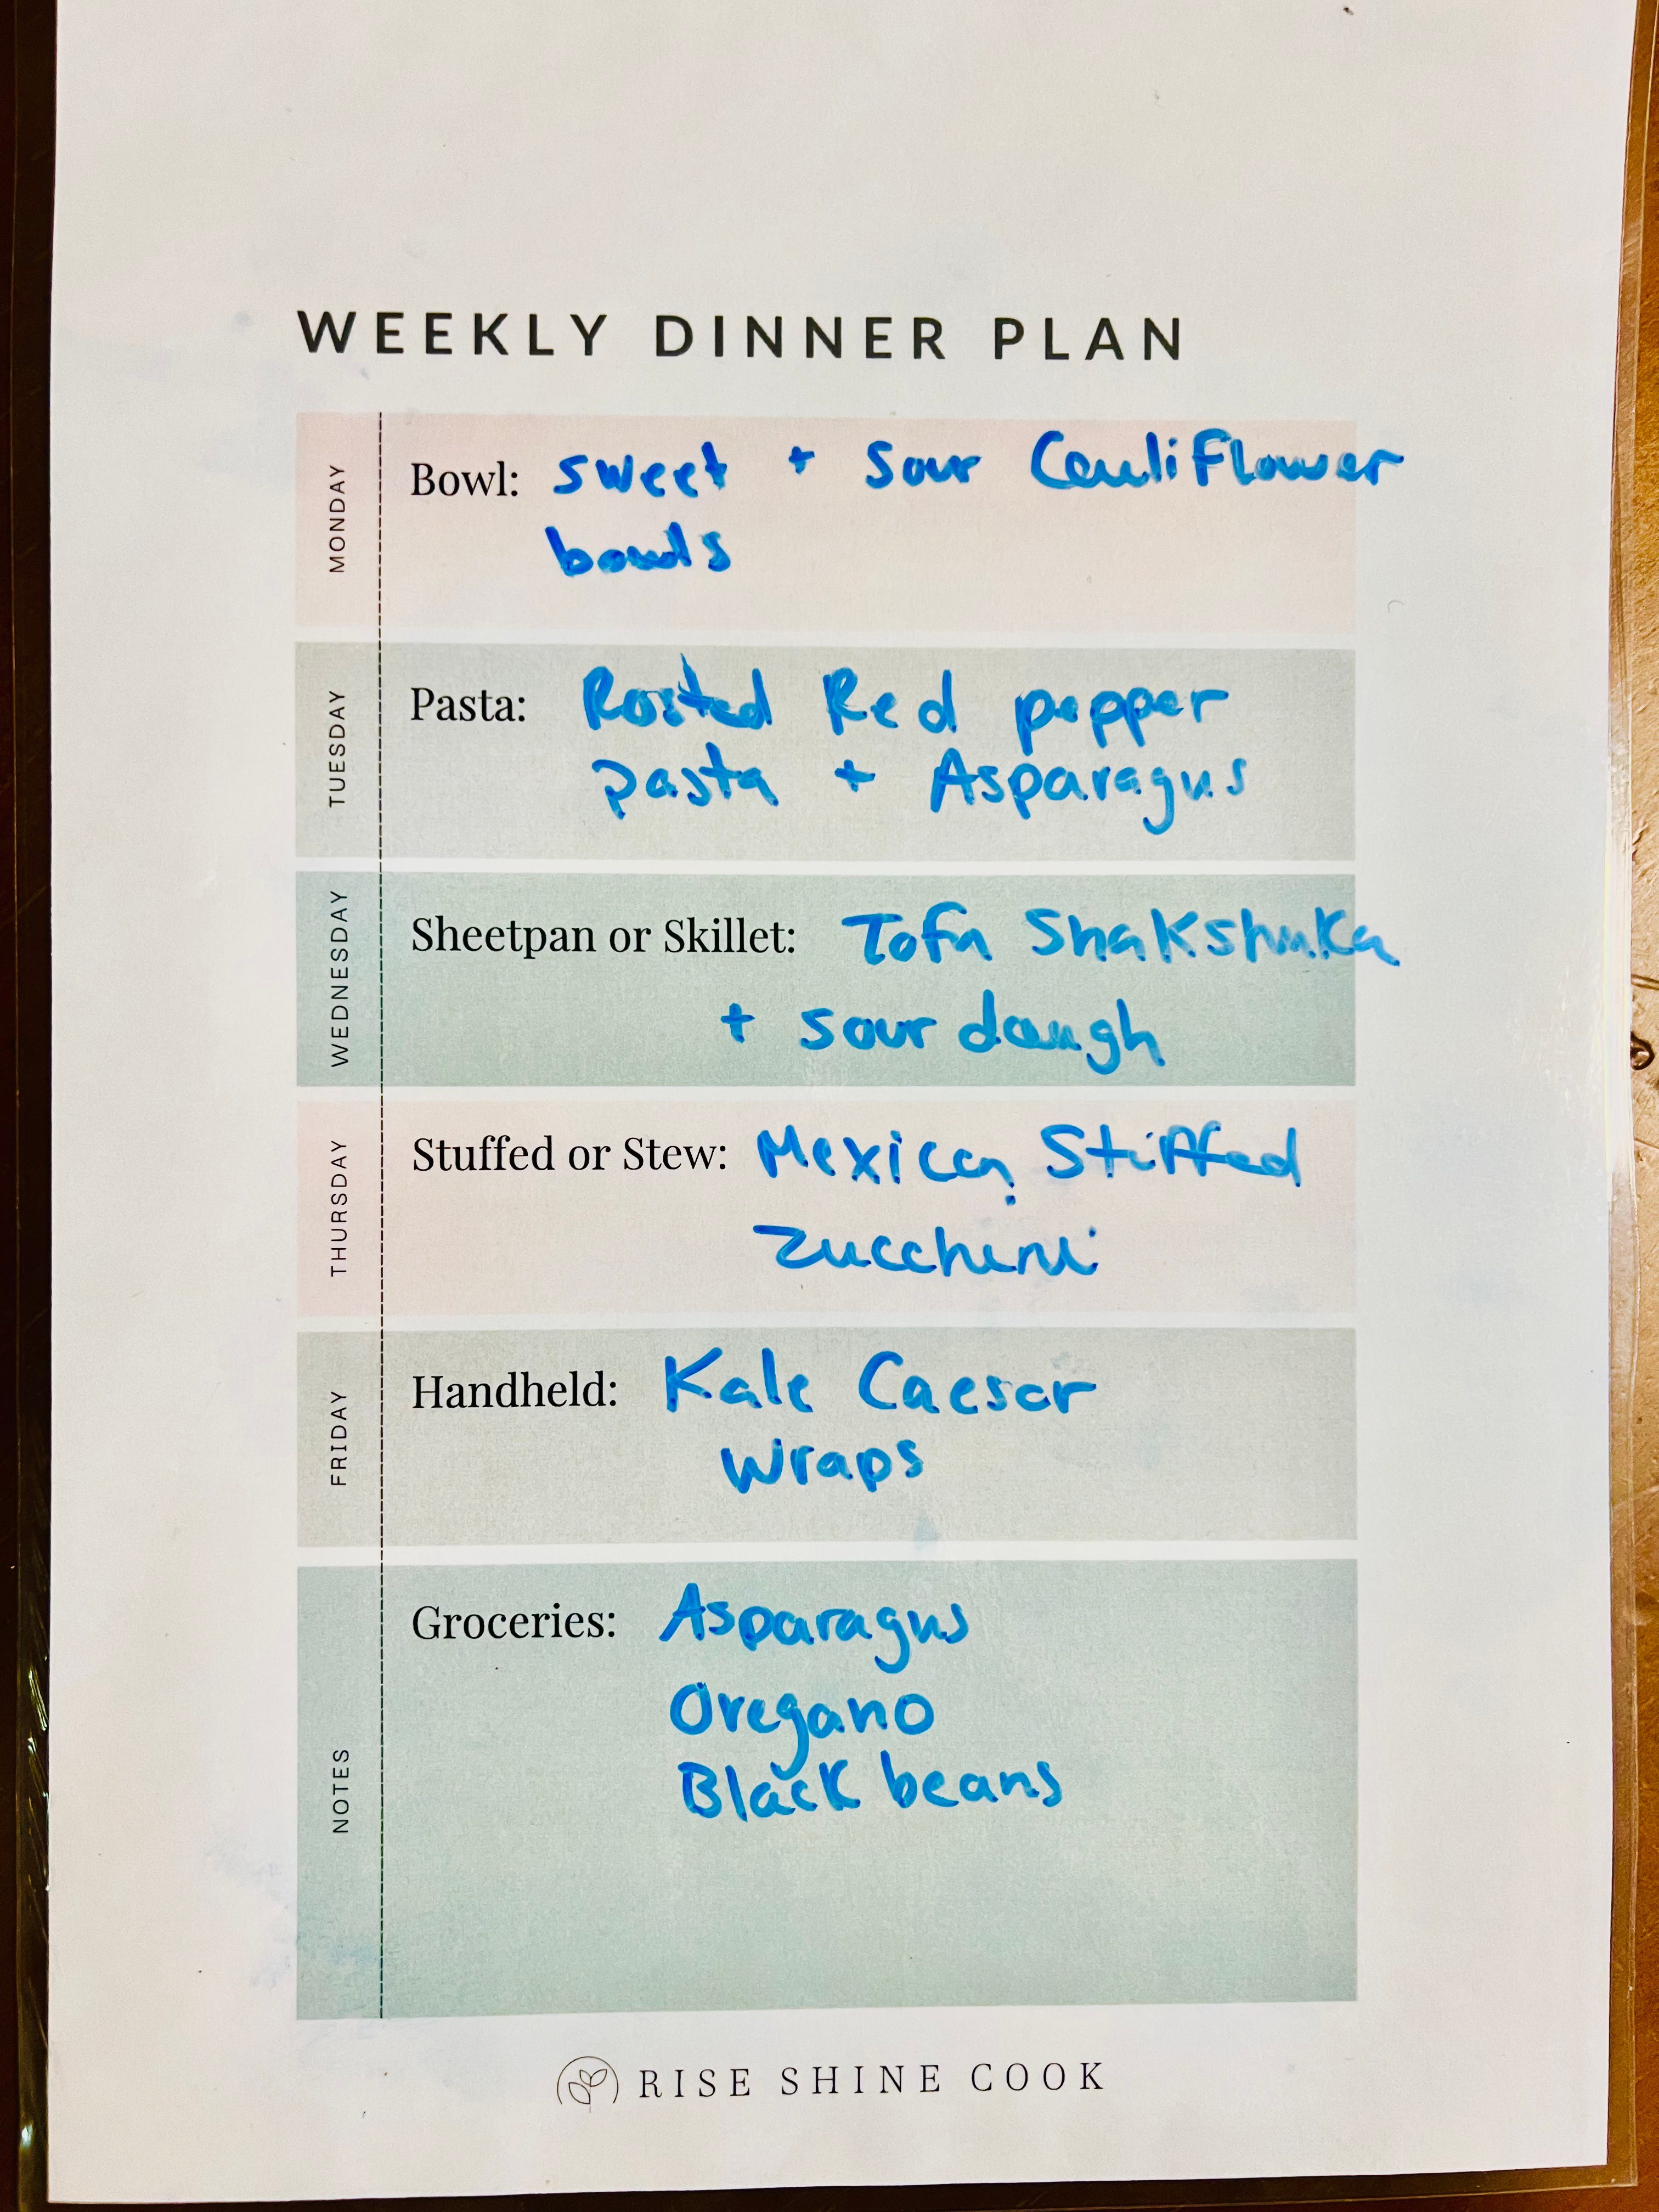 WEEKLY DINNER PLAN
MONDAY
Bowl: sweet + sour Cauliflower
bowls
TUESDAY
Pasta: Rosted Red pepper
pasta + Asparagus
WEDNESDAY
Sheetpan or Skillet: Tofu Shakshuka
+ sour dough
THURSDAY
Stuffed or Stew: Mexican Stuffed
Zucchini
FRIDAY
Handheld: Kale Caesar
wraps
NOTES
Groceries: Asparagus
Oregano
Black beans
RISE SHINE COOK